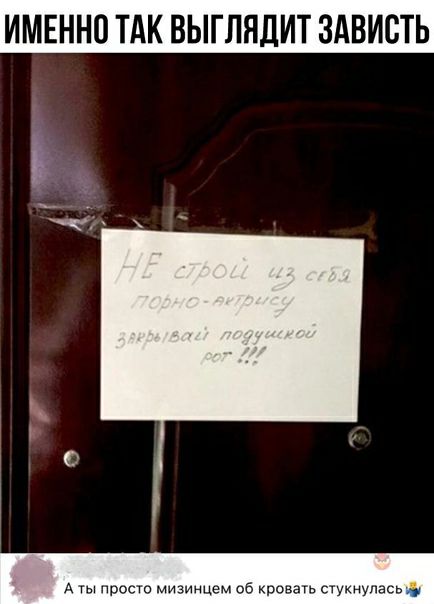 ИМЕННО ТАК ВЫГЛЯДИТ ЗАВИСТЬ
НЕ строй из себя
порно-актрису
закрывай подушкой
рот !!!
А ты просто мизинцем об кровать стукнулась🤷‍♂️